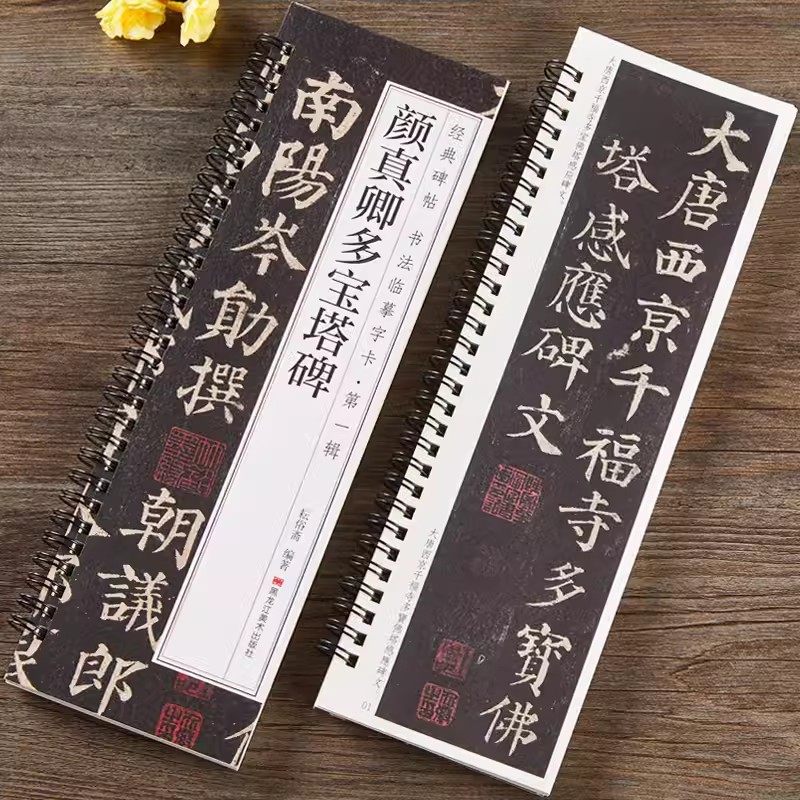 经典碑帖 书法临摹字卡·第一辑
颜真卿多宝塔碑
耘俗斋 编著
黑龙江美术出版社
南陽岑勛撰
朝議郎
大唐西京千福寺多寶佛
塔感應碑文
大唐西京千福寺多宝佛塔感应碑文
大唐西京千福寺多寶佛塔感應碑文
01